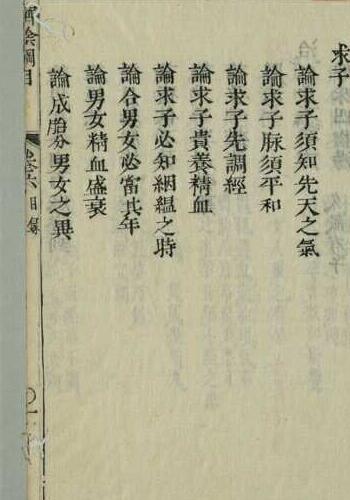 求子
論求子須知先天之氣
論求子脉須平和
論求子先調經
論求子貴養精血
論求子必知絪縕之時
論合男女必當其年
論男女精血盛衰
論成胎分男女之異
濟陰綱目
卷六目錄